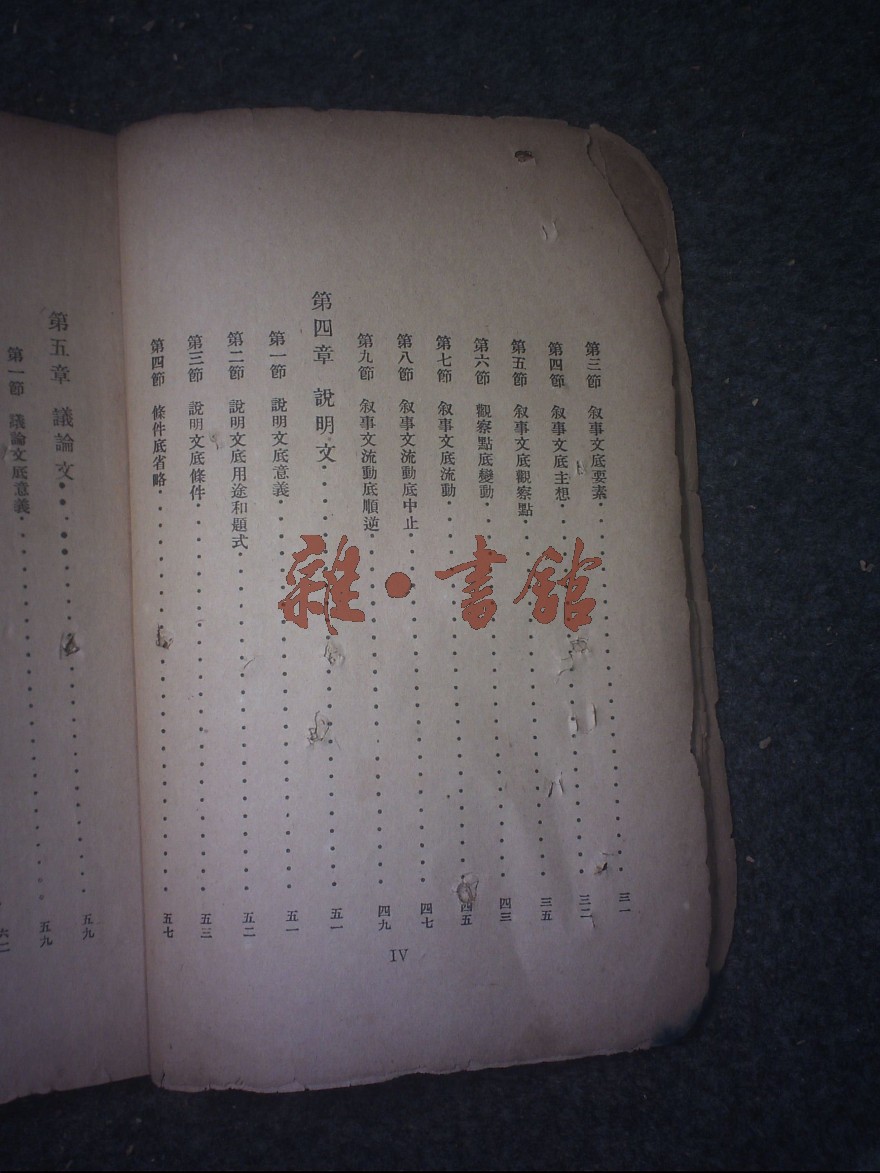 第三節 敘事文底要素 三一
第四節 敘事文底主想 三二
第五節 敘事文底觀察點 三五
第六節 觀察點底變動 四三
第七節 敘事文底流動 四五
第八節 敘事文流動底中止 四七
第九節 敘事文流動底順逆 四九
第四章 說明文 五一
第一節 說明文底意義 五一
第二節 說明文底用途和題式 五二
第三節 說明文底條件 五三
第四節 條件底省略 五七
IV
第五章 議論文 五九
第一節 議論文底意義 五九
六二
雜·書館